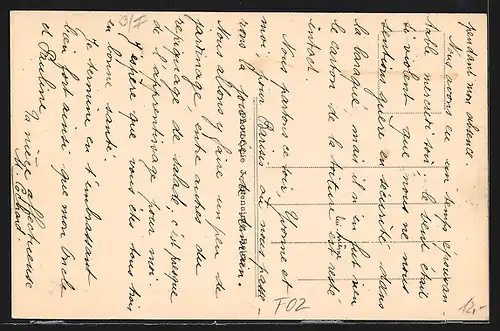 pendant mon absence.
Nous avons eu un temps épouvan-
table mercredi soir, le vent était
si violent que nous ne nous
sentions guère en sécurité dans
la baraque mais il n'en fut rien
le carton de la toiture
lui-même
est resté
intact.
Nous partons ce soir, Yvonne et
moi pour Paris où nous passe-
rons la journée de demain.
Nous allons y faire un peu de
jardinage, entre autres du
repiquage de salade; c'est presque
de l'apprentissage pour moi.
J'espère que vous êtes tous trois
en bonne santé.
Je termine en t'embrassant
bien fort ainsi que mon Oncle
et Pauline
Ta nièce affectueuse
F02
12,-